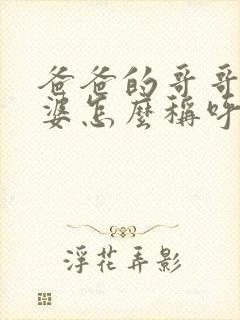 爸爸的哥哥
婆怎麼稱呼
浮花弄影